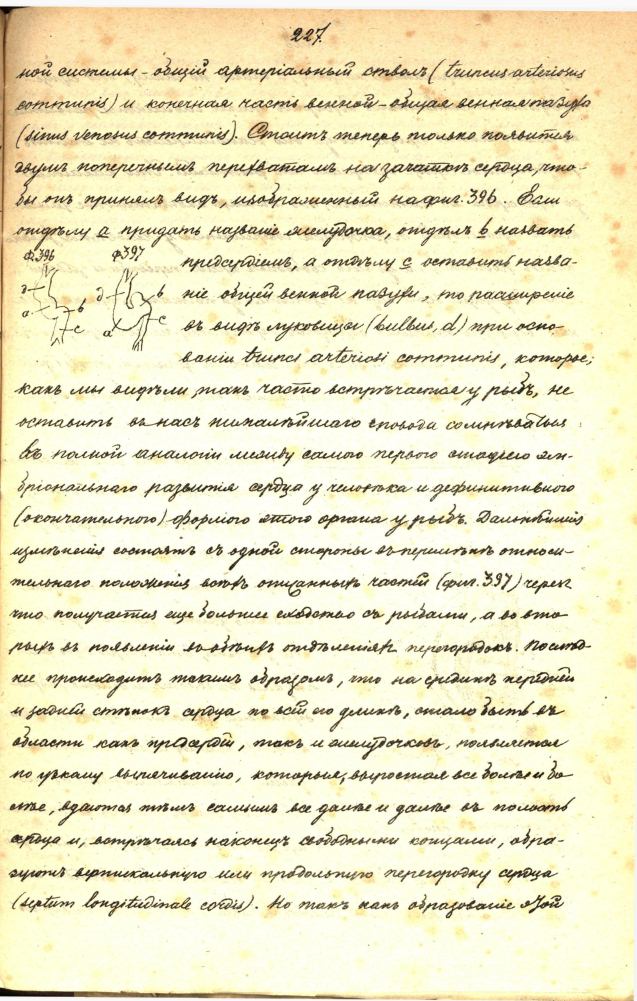 227.
ной системы - общій артеріальный стволъ (truncus arteriosus
communis) и конечная часть венной - общая венная пазуха
(sinus venosus communis). Стоитъ теперь только появиться
двумъ поперечнымъ перехватамъ на зачаткѣ сердца, что-
бы онъ принялъ видъ, изображенный на фиг. 396. Если
отдѣлу a придать названіе желудочка, отдѣлъ b назвать
Ф. 396 Ф. 397
д b a c
д b a c
предсердіемъ, а отдѣлу c оставить назва-
ніе общей венной пазухи, то расширеніе
въ видѣ луковицы (bulbus, d) при осно-
ваніи trunci arteriosi communis, которое,
какъ мы видѣли, такъ часто встрѣчается у рыбъ, не
оставитъ въ насъ ни малѣйшаго повода сомнѣваться
въ полной аналогіи между самою первою стадіею эм-
бріональнаго развитія сердца у человѣка и дефинитивною
(окончательною) формою этого органа у рыбъ. Дальнѣйшія
измѣненія состоятъ съ одной стороны въ перемѣнѣ относи-
тельнаго положенія всѣхъ описанныхъ частей (фиг. 397) черезъ
что получается еще большее сходство съ рыбами, а во вто-
рыхъ въ появленіи въ обѣихъ отдѣленіяхъ перегородокъ. Послѣд-
нее происходитъ такимъ образомъ, что на срединѣ передней
и задней стѣнокъ сердца по всей его длинѣ, стало быть въ
области какъ предсердій, такъ и желудочковъ, появляется
по узкому выпячиванію, которыя, выростая все болѣе и бо-
лѣе, вдаются тѣмъ самымъ все далѣе и далѣе въ полость
сердца и, встрѣчаясь наконецъ свободными концами, обра-
зуютъ вертикальную или продольную перегородку сердца
(septum longitudinale cordis). Но такъ какъ образованіе этой